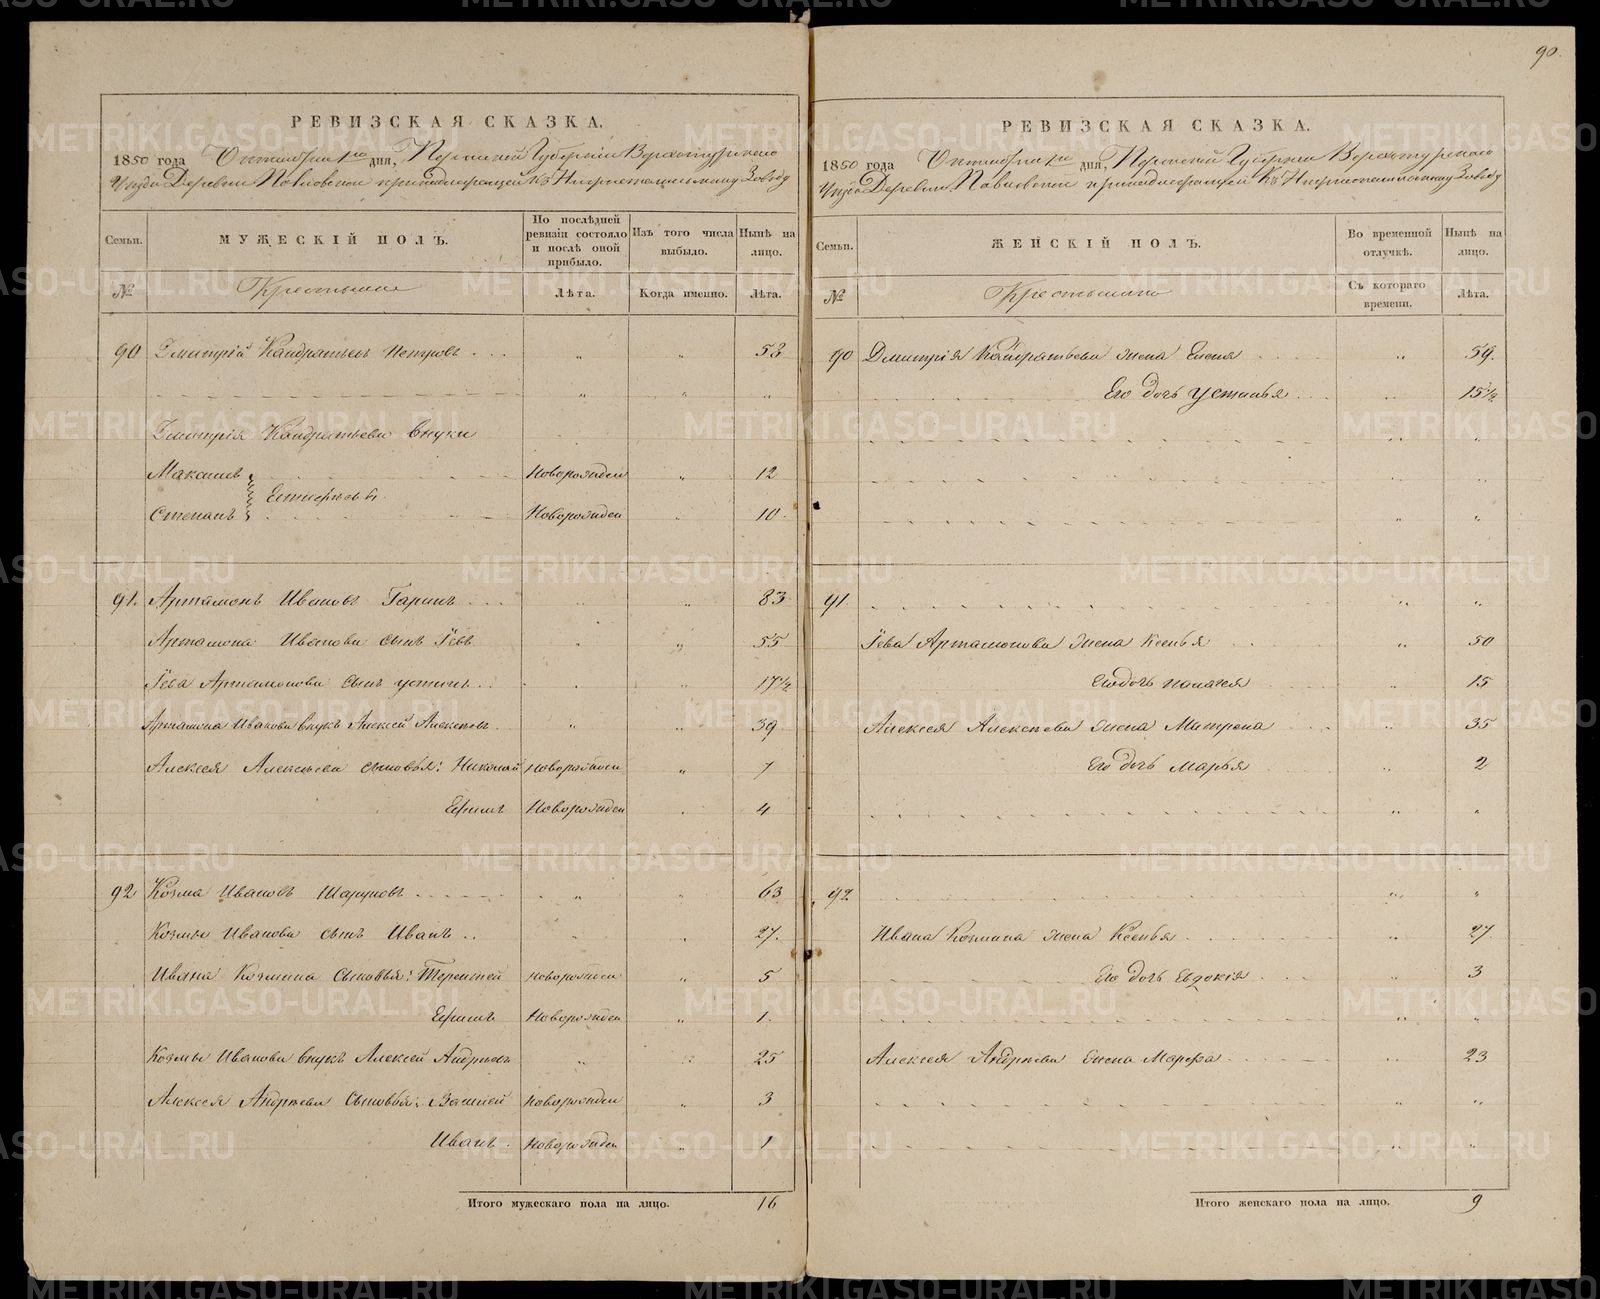 90.
РЕВИЗСКАЯ СКАЗКА.
1850 года Октября 1го дня, Пермской Губерніи Верхотурскаго
Уѣзда Деревни Павловской принадлежащей къ Нижнетагильскому Заводу
Семьи. МУЖЕСКІЙ ПОЛЪ. По послѣдней ревизіи состояло и послѣ оной прибыло. Изъ того числа выбыло. Нынѣ на лицо.
№ Крестьяне Лѣта. Когда именно. Лѣта.
90 Дмитрій Кандратьевъ Петровъ . . . „ „ 53
„ „ „
Дмитрія Кандратьева внуки
Максимъ Новорожден „ 12
Степанъ Новорожден „ 10
91. Артамонъ Ивановъ Гаринъ . . . „ „ 83
Артамона Иванова сынъ Іевъ „ „ 55
Іева Артамонова сынъ Устинъ . . „ „ 17½
Артамона Иванова внукъ Алексей Алексеевъ „ „ 39
Алексея Алексеева сыновья: Николай Новорожден „ 7
Ефимъ Новорожден „ 4
92 Козма Ивановъ Шаруновъ „ „ 63
Козмы Иванова сынъ Иванъ . . „ „ 27.
Ивана Козмина Сыновья: Терентей Новорожден „ 5
Ефимъ Новорожден „ 1.
Козмы Иванова внукъ Алексей Андреевъ „ „ 25
Алексея Андреева Сыновья: Василей Новорожден „ 3
Иванъ . Новорожден „ 1
Итого мужескаго пола на лицо. 16
РЕВИЗСКАЯ СКАЗКА.
1850 года Октября 1го дня, Пермской Губерніи Верхотурскаго
Уѣзда Деревни Павловской принадлежащей къ Нижнетагильскому Заводу
Семьи. ЖЕНСКІЙ ПОЛЪ. Во временной отлучкѣ. Нынѣ на лицо.
№ Крестьянки Съ котораго времени. Лѣта.
90 Дмитрія Кандратьева жена Елена „ 59.
Его дочь Устинья „ 15½
91. „ „
Іева Артамонова жена Ксенья „ 50
Его дочь Палагея „ 15
Алексея Алексеева жена Матрена „ 35
Его дочь Марья „ 2
92 „ „
Ивана Козмина жена Ксенья „ 27
Его дочь Евдокія „ 3
Алексея Андреева жена Марфа „ 23
Итого женскаго пола на лицо. 9
METRIKI.GASO-URAL.RU